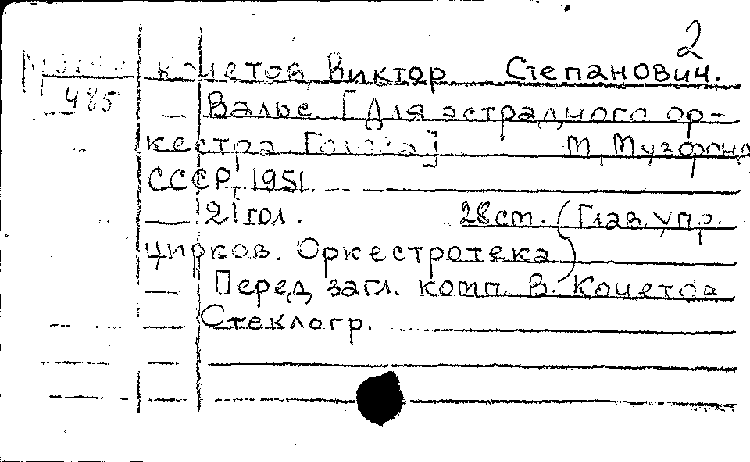 2
Кочетов Виктор Степанович.
485
Вальс [Для эстрадного ор-
кестра М, Музфонд
СССР, 1951
21 гол. 28 ст. (Глав. упр.
цирков. Оркестротека)
Перед загл. комп. В. Кочетов
Стеклогр.